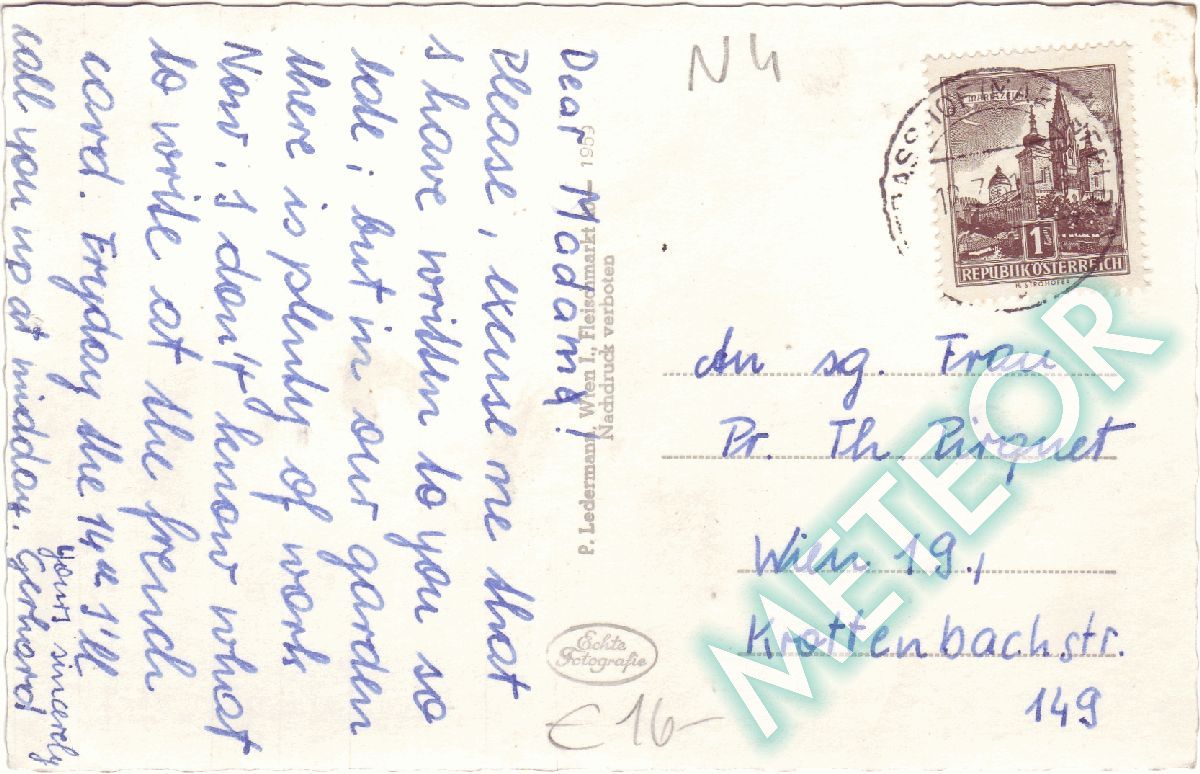 Dear Madam!
Please, excuse me that
I have written to you so
late; but in our garden
there is plenty of work
Now, I don't know what
to write at the french
card. Fryday the 14th I'll
call you up at midday.
yours sincerely
Gerhard
P. Ledermann, Wien I., Fleischmarkt
Nachdruck verboten
Echte
Fotografie
N4
MARIAZELL
1S
REPUBLIK ÖSTERREICH
H. STROHOFER
An sg. Frau
Dr. Th. Pirquet
Wien 19.,
Krottenbachstr.
149
€ 16-
METEOR